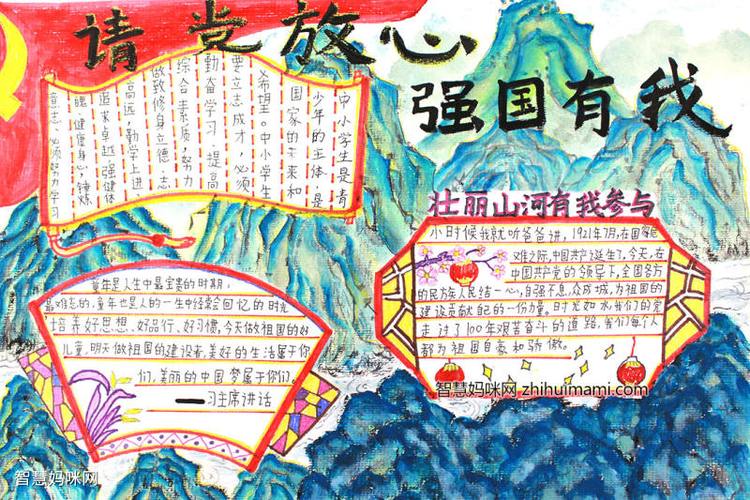 请党放心
强国有我
中小学生是青
少年的主体,是
国家的未来和
希望,中小学生
要立志成才,必须
勤奋学习,提高
综合素质,努力
做致修身立德,志
高远,勤学上进,
追求卓越,强健体
魄,健康身心,锤炼
意志,必须努力学习
壮丽山河有我参与
小时候我就听爸爸讲,1921年7月,在国家危
难之际,中国共产党诞生了,今天,在
中国共产党的领导下,全国各方
的民族人民结一心,自强不息,众志成城,为祖国的
建设贡献自己的一份力量。时光如水,我们的党
走过了100年艰苦奋斗的道路,我们每个人
都为祖国自豪和骄傲。
童年是人生中最宝贵的时期,
最难忘的,童年也是人的一生中经常会回忆的时光
培养好思想、好品行、好习惯,今天做祖国的好
儿童,明天做祖国的建设者,美好的生活属于你
们,美丽的中国梦属于你们。
——习主席讲话
智慧妈咪网 zhihuimami.com
智慧妈咪网